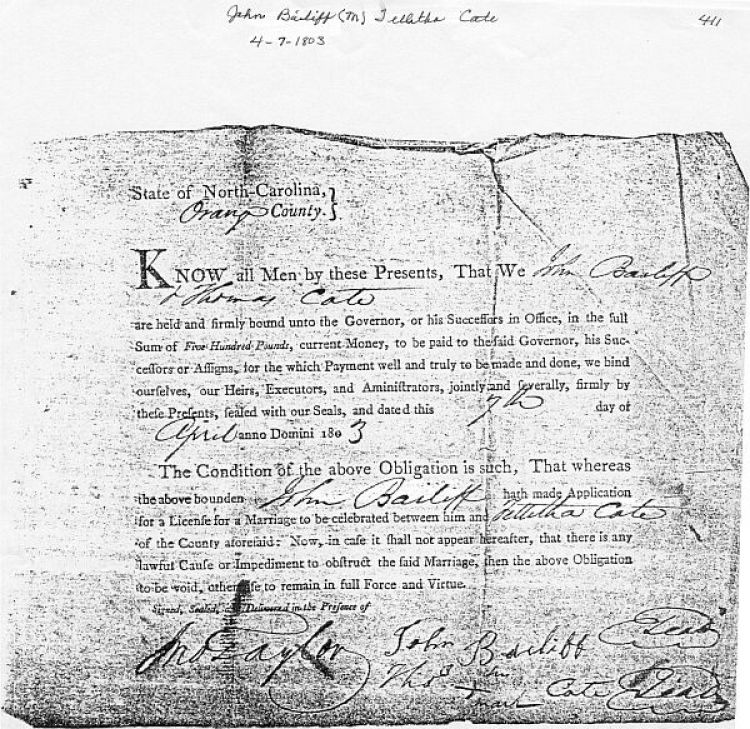 John Bailiff (M) Tellitha Cate
411
4-7-1803
State of North-Carolina, }
Orang County. }
KNOW all Men by these Presents, That We John Bailiff
& Thomas Cate
are held and firmly bound unto the Governor, or his Succeſſors in Office, in the full
Sum of Five Hundred Pounds, current Money, to be paid to the ſaid Governor, his Suc-
ceſſors or Aſſigns, for the which Payment well and truly to be made and done, we bind
ourſelves, our Heirs, Executors, and Aminiſtrators, jointly and ſeverally, firmly by
theſe Preſents, ſealed with our Seals, and dated this 7th day of
April anno Domini 1803
The Condition of the above Obligation is such, That whereas
the above bounden John Bailiff hath made Application
for a Licenſe for a Marriage to be celebrated between him and Tellitha Cate
of the County aforeſaid: Now, in caſe it ſhall not appear hereafter, that there is any
lawful Cauſe or Impediment to obſtruct the ſaid Marriage, then the above Obligation
to be void, otherwiſe to remain in full Force and Virtue.
Signed, Sealed, Delivered in the Preſence of
Jno Taylor
John Bailiff (Seal)
Thos Cate (Seal)
mark